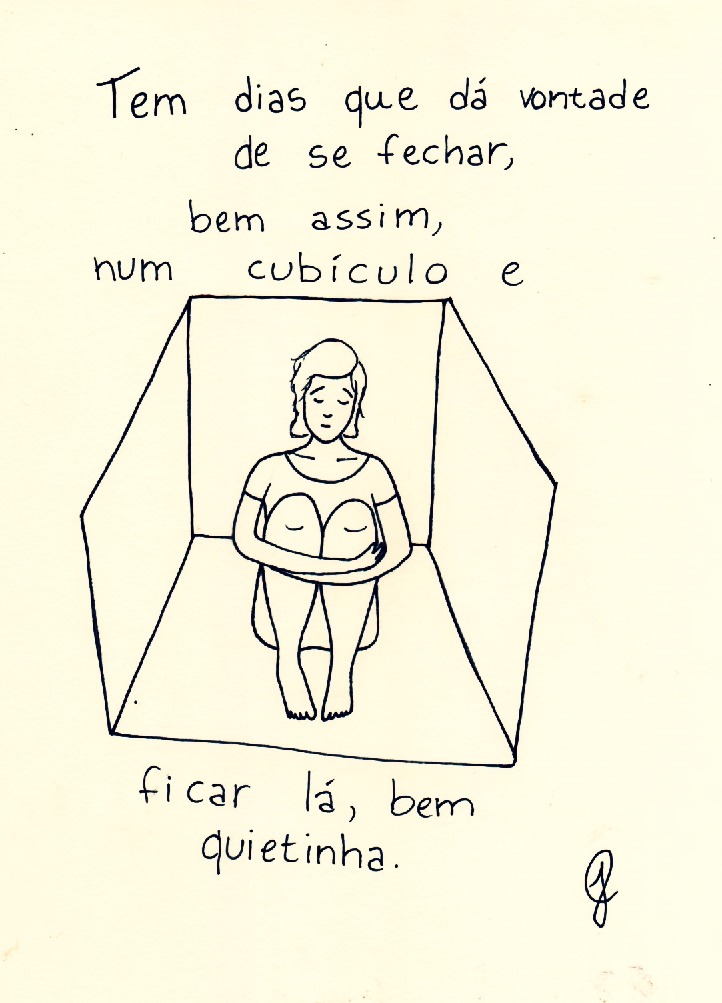 Tem dias que dá vontade
de se fechar,
bem assim,
num cubículo e
ficar lá, bem
quietinha.